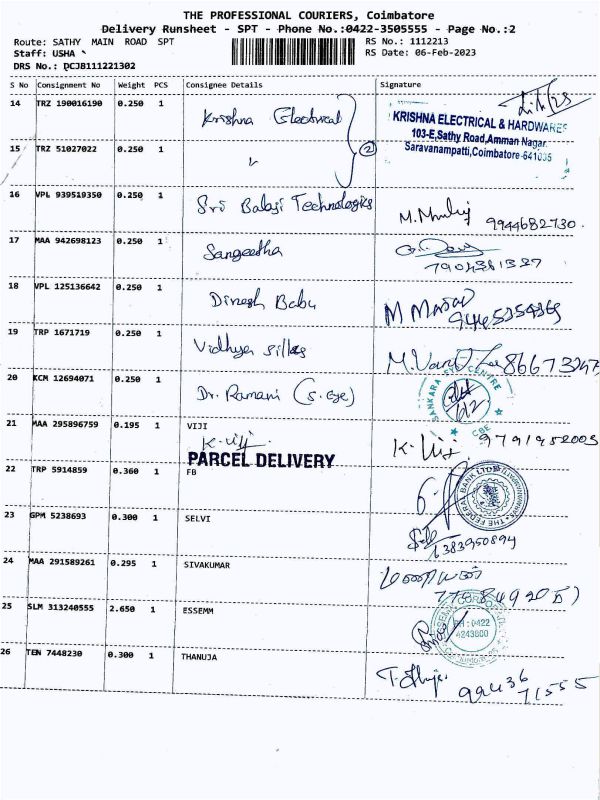 THE PROFESSIONAL COURIERS, Coimbatore
Delivery Runsheet - SPT - Phone No.:0422-3505555 - Page No.:2
Route: SATHY MAIN ROAD SPT RS No.: 1112213
Staff: USHA RS Date: 06-Feb-2023
DRS No.: DCJB111221302
S No Consignment No Weight PCS Consignee Details Signature
14 TRZ 190016190 0.250 1 Krishna Electrical
KRISHNA ELECTRICAL & HARDWARES
103-E,Sathy Road,Amman Nagar,
Saravanampatti,Coimbatore-641035
15 TRZ 51027022 0.250 1 2
16 VPL 939519350 0.250 1 Sri Balaji Technologies 9944682730.
17 MAA 942698123 0.250 1 Sangeetha
18 VPL 125136642 0.250 1 Dinesh Babu
19 TRP 1671719 0.250 1 Vidhya silks
20 KCM 12694071 0.250 1 Dr. Ramani (S. eye)
SANKARA EYE CENTRE
CBE
21 MAA 295896759 0.195 1 VIJI 9791952003
K. Viji K. Viji
PARCEL DELIVERY
22 TRP 5914859 0.360 1 FB
THE FEDERAL BANK LTD
23 GPM 5238693 0.300 1 SELVI
24 MAA 291589261 0.295 1 SIVAKUMAR
25 SLM 313240555 2.650 1 ESSEMM
PH : 0422
4243800
26 TEN 7448230 0.300 1 THANUJA
99436
71555